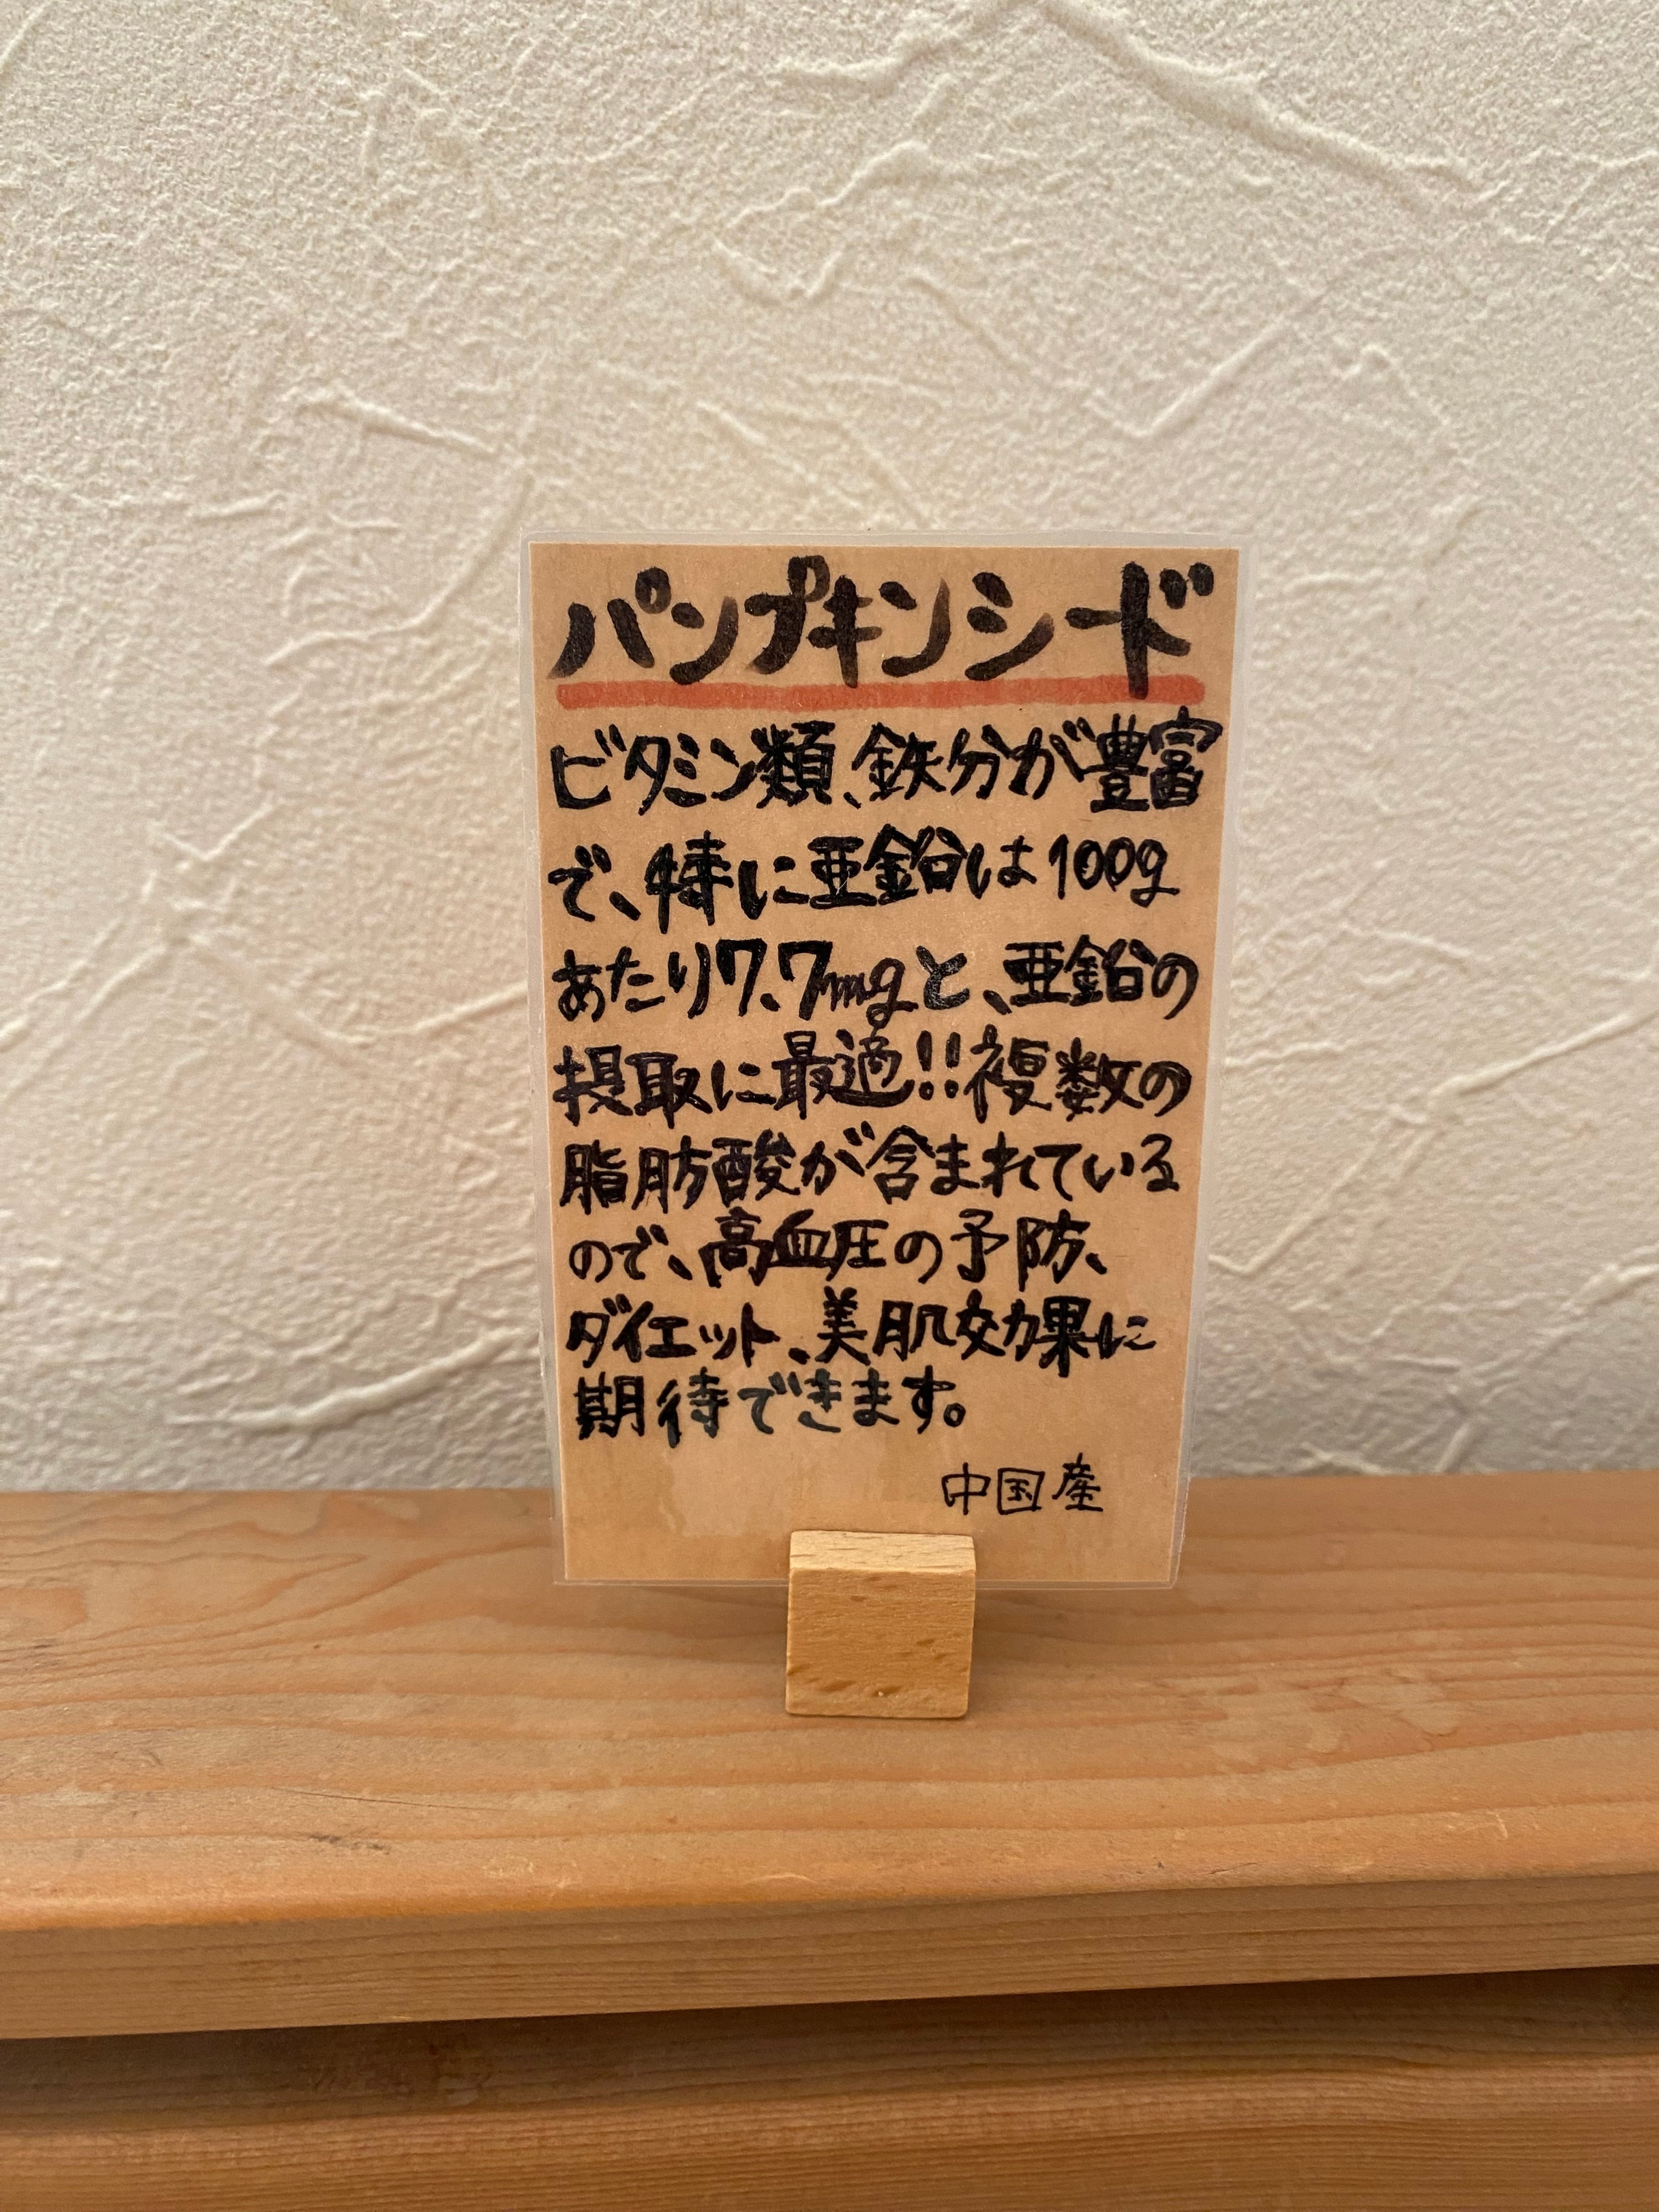 パンプキンシード
ビタミン類、鉄分が豊富
で、特に亜鉛は100g
あたり7.7mgと、亜鉛の
摂取に最適!!複数の
脂肪酸が含まれている
ので、高血圧の予防、
ダイエット、美肌効果に
期待できます。
中国産